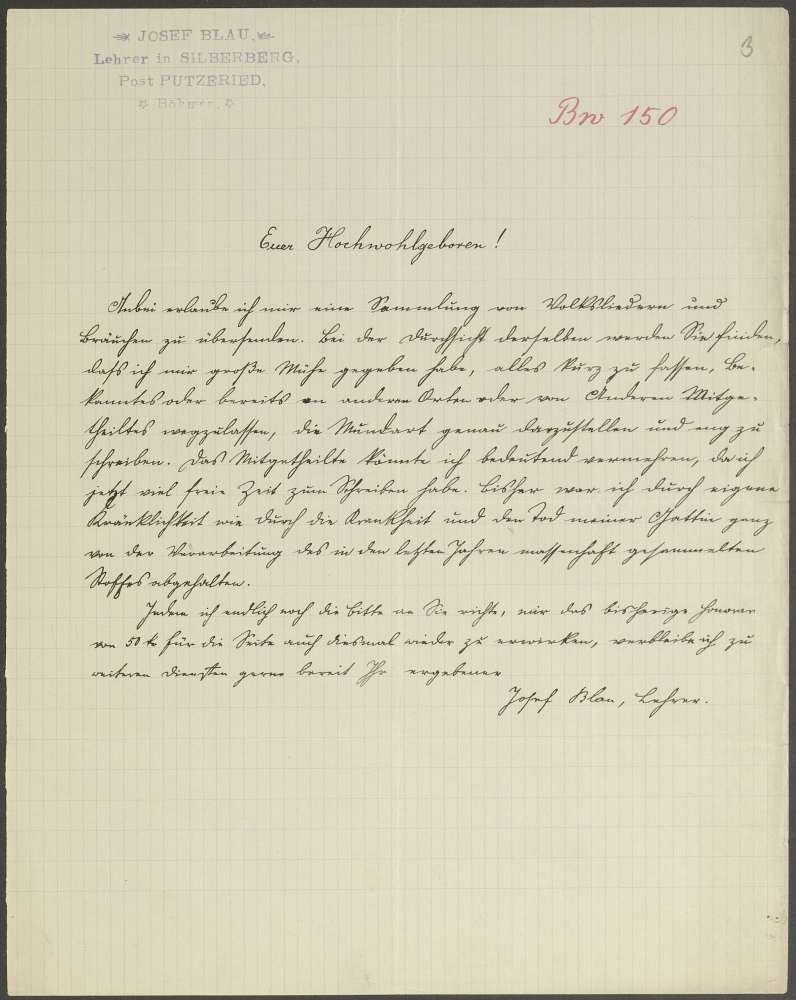 JOSEF BLAU,
Lehrer in SILBERBERG,
Post PUTZERIED,
Böhmen.
3
Bw 150
Euer Hochwohlgeboren!
Anbei erlaube ich mir eine Sammlung von Volksliedern und
Bräuchen zu übersenden. Bei der Durchsicht derselben werden Sie finden,
dass ich mir große Mühe gegeben habe, alles kurz zu fassen, Be-
kanntes oder bereits an anderen Orten oder von Anderen Mitge-
theiltes wegzulassen, die Mundart genau darzustellen und eng zu
schreiben. Das Mitgetheilte könnte ich bedeutend vermehren, da ich
jetzt viel freie Zeit zum Schreiben habe. Bisher war ich durch eigene
Kränklichkeit wie durch die Krankheit und den Tod meiner Gattin ganz
von der Verarbeitung des in den letzten Jahren massenhaft gesammelten
Stoffes abgehalten.
Indem ich endlich noch die Bitte an Sie richte, mir das bisherige Honorar
von 50 kr für die Seite auch diesmal wieder zu erwirken, verbleibe ich zu
weiteren Diensten gerne bereit Ihr ergebener
Josef Blau, Lehrer.